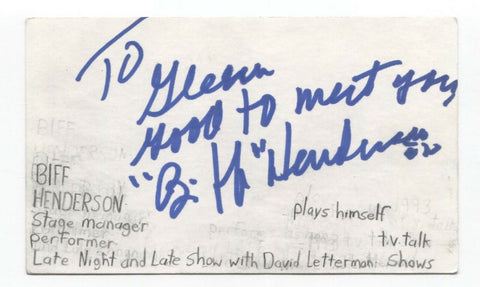 To
Glenn
Good to meet you
"Biff" Henderson
BIFF
HENDERSON
Stage manager
performer
plays himself
t.v. talk
Late Night and Late Show with David Letterman Shows